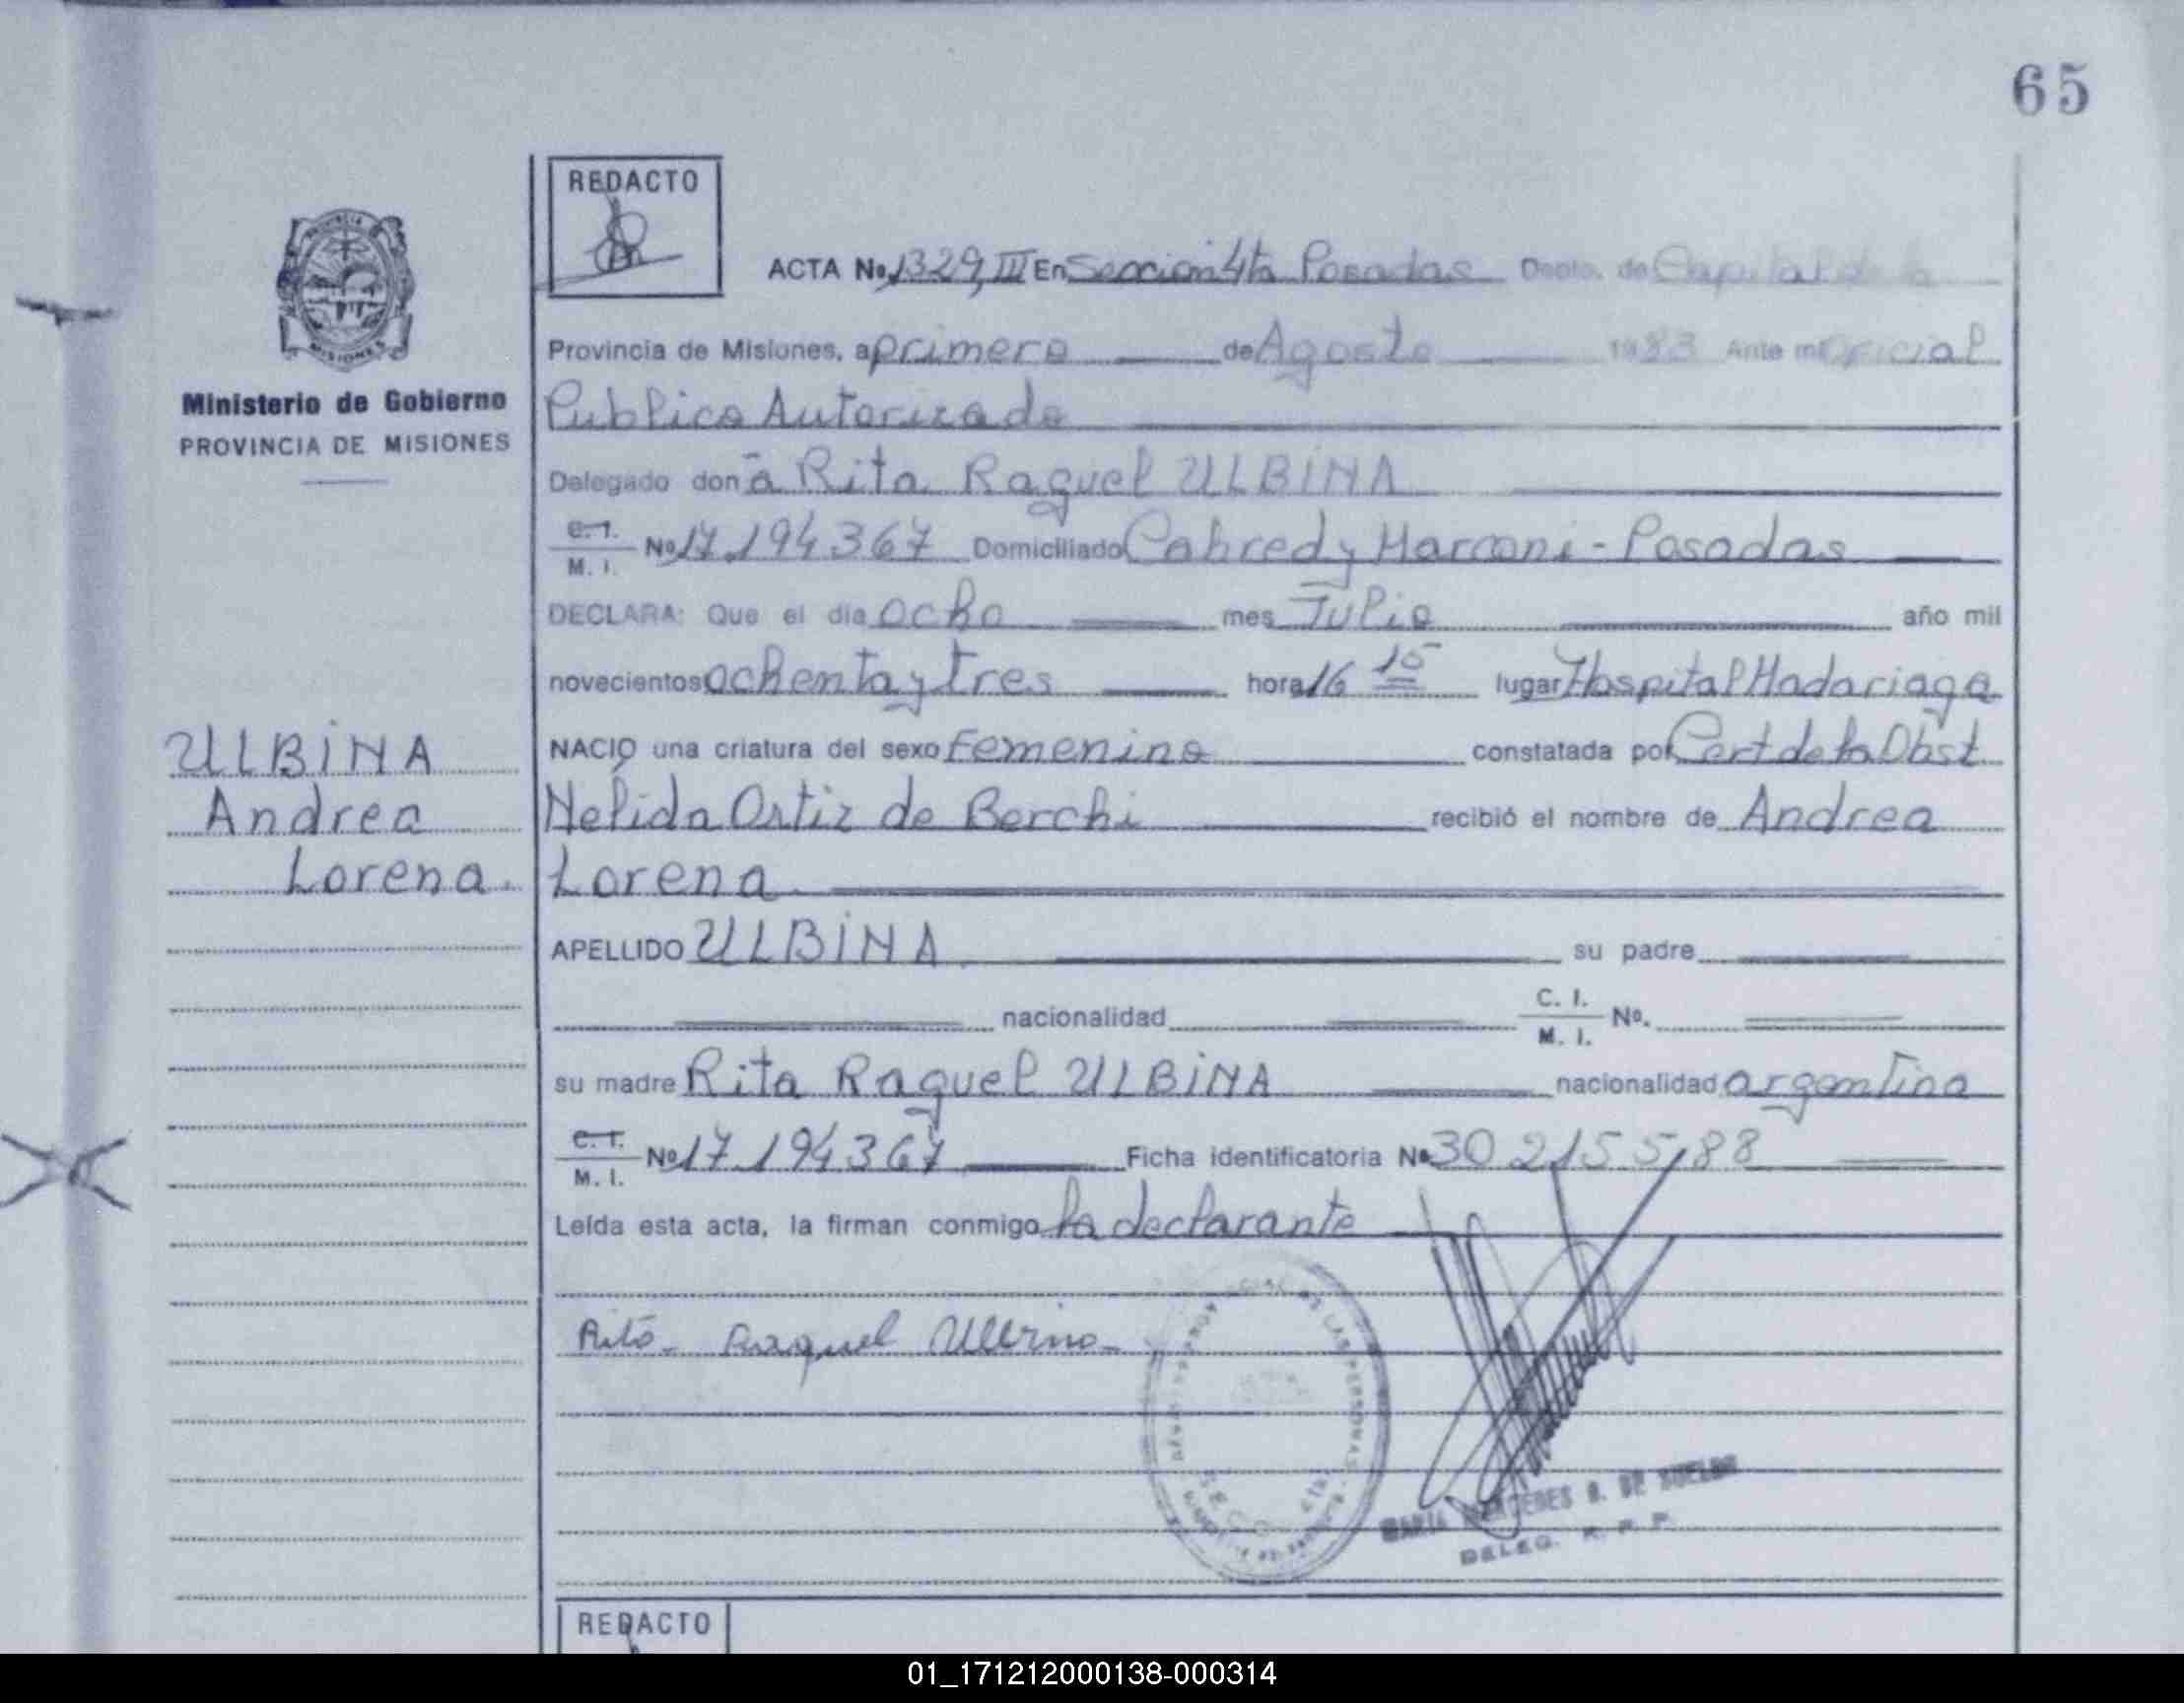 65
REDACTO
ACTA No. 1329, III En Seccion 4ta Posadas Depto. de Capital de la
Provincia de Misiones, a primero de Agosto 1983 Ante mi Oficial
Publico Autorizado
Delegado doña Rita Raquel ULBINA
C. I. M. I. No 17.194.367 Domiciliado Cabred y Marconi - Posadas
DECLARA: Que el día ocho mes Julio año mil
novecientos ochenta y tres hora 16 15 lugar Hospital Madariaga
NACIO una criatura del sexo Femenino constatada por Cert de la Obst
Nelida Ortiz de Berchi recibió el nombre de Andrea
Lorena
APELLIDO ULBINA su padre
nacionalidad C. I. M. I. No.
su madre Rita Raquel ULBINA nacionalidad argentina
C. I. M. I. No 17.194.367 Ficha identificatoria No 30.215.588
Leída esta acta, la firman conmigo la declarante
Rita Raquel Ulbina
DE LAS PERSONAS
SECC 4ta
MARIA MERCEDES
DELEG. R. P. P.
REDACTO
PROVINCIA
MISIONES
Ministerio de Gobierno
PROVINCIA DE MISIONES
ULBINA
Andrea
Lorena.
01_171212000138-000314